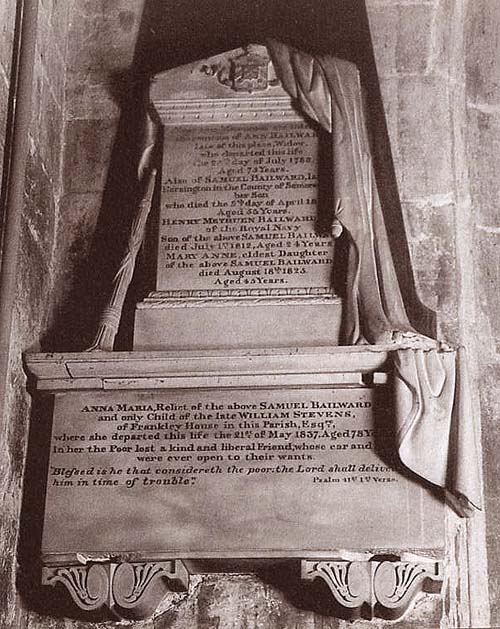 ANN BAILWARD
late of this place, Widow,
who departed this life
the day of July 1788,
Aged 73 Years.
Also of SAMUEL BAILWARD,
Horsington in the County of Somers
her Son
who died the day of April
Aged Years.
HENRY METHUEN BAILWARD
of the Royal Navy
Son of the above SAMUEL BAILWA
died July 1st 1812, Aged 24 Years
MARY ANNE, eldest Daughter
of the above SAMUEL BAILWARD
died August 18th 1825.
Aged 45 Years.
ANNA MARIA, Relict of the above SAMUEL BAILWARD
and only Child of the late WILLIAM STEVENS,
of Frankley House in this Parish, Esqre,
where she departed this life the 21st of May 1837. Aged 78 Ye
In her the Poor lost a kind and liberal Friend, whose ear and
were ever open to their wants.
"Blessed is he that considereth the poor: the Lord shall deliver
him in time of trouble". Psalm 41st 1st Verse.